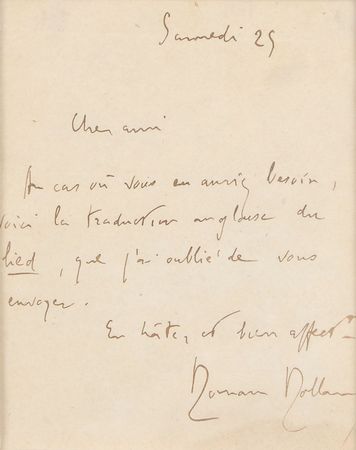 Samedi 25
Cher ami
Au cas où vous en auriez besoin,
voici la traduction anglaise du
lied, que j'ai oublié de vous
envoyer.
En hâte, et bien affectt
Romain Rolland